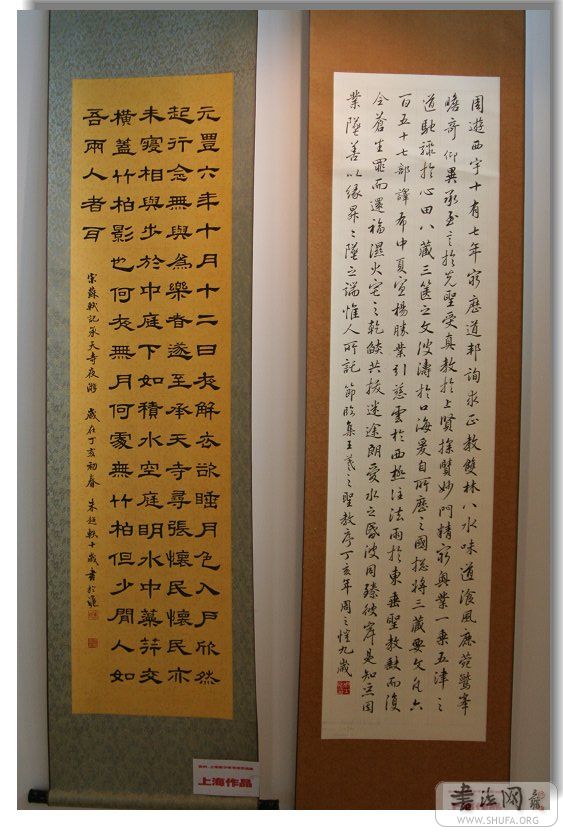 周遊西宇十有七年窮歷道邦詢求正教雙林八水味道飡風鹿菀鷲峯
瞻奇仰異承至言於先聖受真教於上賢探賾妙門精窮奧業一乘五津之
道馳驟於心田八藏三篋之文波濤於口海爰自所歷之國捴將三藏要文凡六
百五十七部譯布中夏宣楊勝業引慈雲於西極注法雨於東垂聖教缺而復
全蒼生罪而還福濕火宅之乾燄共拔迷途朗愛水之昏波同臻彼岸是知惡因
業墜善以緣昇〻墜之端惟人所託 節臨集王羲之聖教序丁亥年周之愷九歲
元豐六年十月十二日夜解衣欲睡月色入戶欣然
起行念無與為樂者遂至承天寺尋張懷民懷民亦
未寢相與步於中庭下如積水空庭明水中藻荇交
橫蓋竹柏影也何夜無月何處無竹柏但少閒人如
吾兩人者耳
宋蘇軾記承天寺夜游 歲在丁亥初春 朱軼十歲書於滬
上海作品
書法网
WWW.SHUFA.ORG